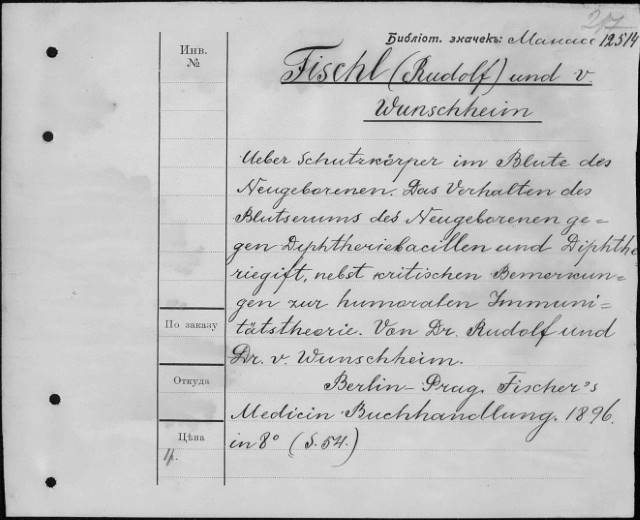 27
Библіот. значекъ: Манасс 12514
Инв.
№
Fischl (Rudolf) und v.
Wunschheim
Ueber Schutzkörper im Blute des
Neugeborenen. Das Verhalten des
Blutserums des Neugeborenen ge=
gen Diphtheriebacillen und Diphthe
riegift, nebst kritischen Bemerkun=
gen zur humoralen Immuni=
tätstheorie. Von Dr. Rudolf und
Dr. v. Wunschheim.
Berlin-Prag. Fischer's
Medicin Buchhandlung. 1896.
in 8° (S. 54.)
По заказу
Откуда
Цѣна